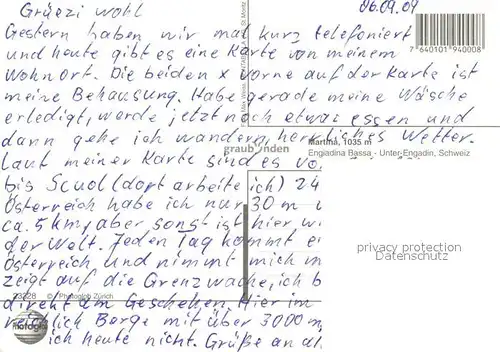 Grüezi wohl
06.09.09
Gestern haben wir mal kurz telefoniert
und heute gibt es eine Karte von meinem
Wohnort. Die beiden x vorne auf der Karte ist
meine Behausung. Habe gerade meine Wäsche
erledigt, werde jetzt noch etwas essen und
dann gehe ich wandern, herrliches Wetter.
Laut meiner Karte sind es vo
bis Scuol (dort arbeite ich) 24
Österreich habe ich nur 30 m
ca. 5 km, aber sonst ist hier wi
der Welt. Jeden Tag kommt e
Österreich und nimmt mich m
zeigt auf die Grenzwache, ich b
direkt am Geschehen. Hier im
reichlich Berge mit über 3000 m
ich heute nicht. Grüße an al
7640101940008
graubünden
Martina, 1035 m
Engiadina Bassa - Unter-Engadin, Schweiz
privacy protection
Datenschutz
23228 © Photoglob Zürich
photoglob